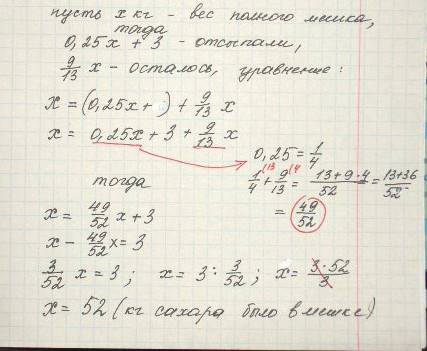 пусть x кг - вес полного мешка,
тогда
0,25x + 3 - отсыпали,
9/13 x - осталось, уравнение:
x = (0,25x + ) + 9/13 x
x = 0,25x + 3 + 9/13 x
0,25 = 1/4
1/4 /13 + 9/13 /4 = (13+9·4)/52 = (13+36)/52
= 49/52
тогда
x = 49/52 x + 3
x - 49/52 x = 3
3/52 x = 3 ; x = 3 : 3/52 ; x = (3·52)/3
x = 52 (кг сахара было в мешке)